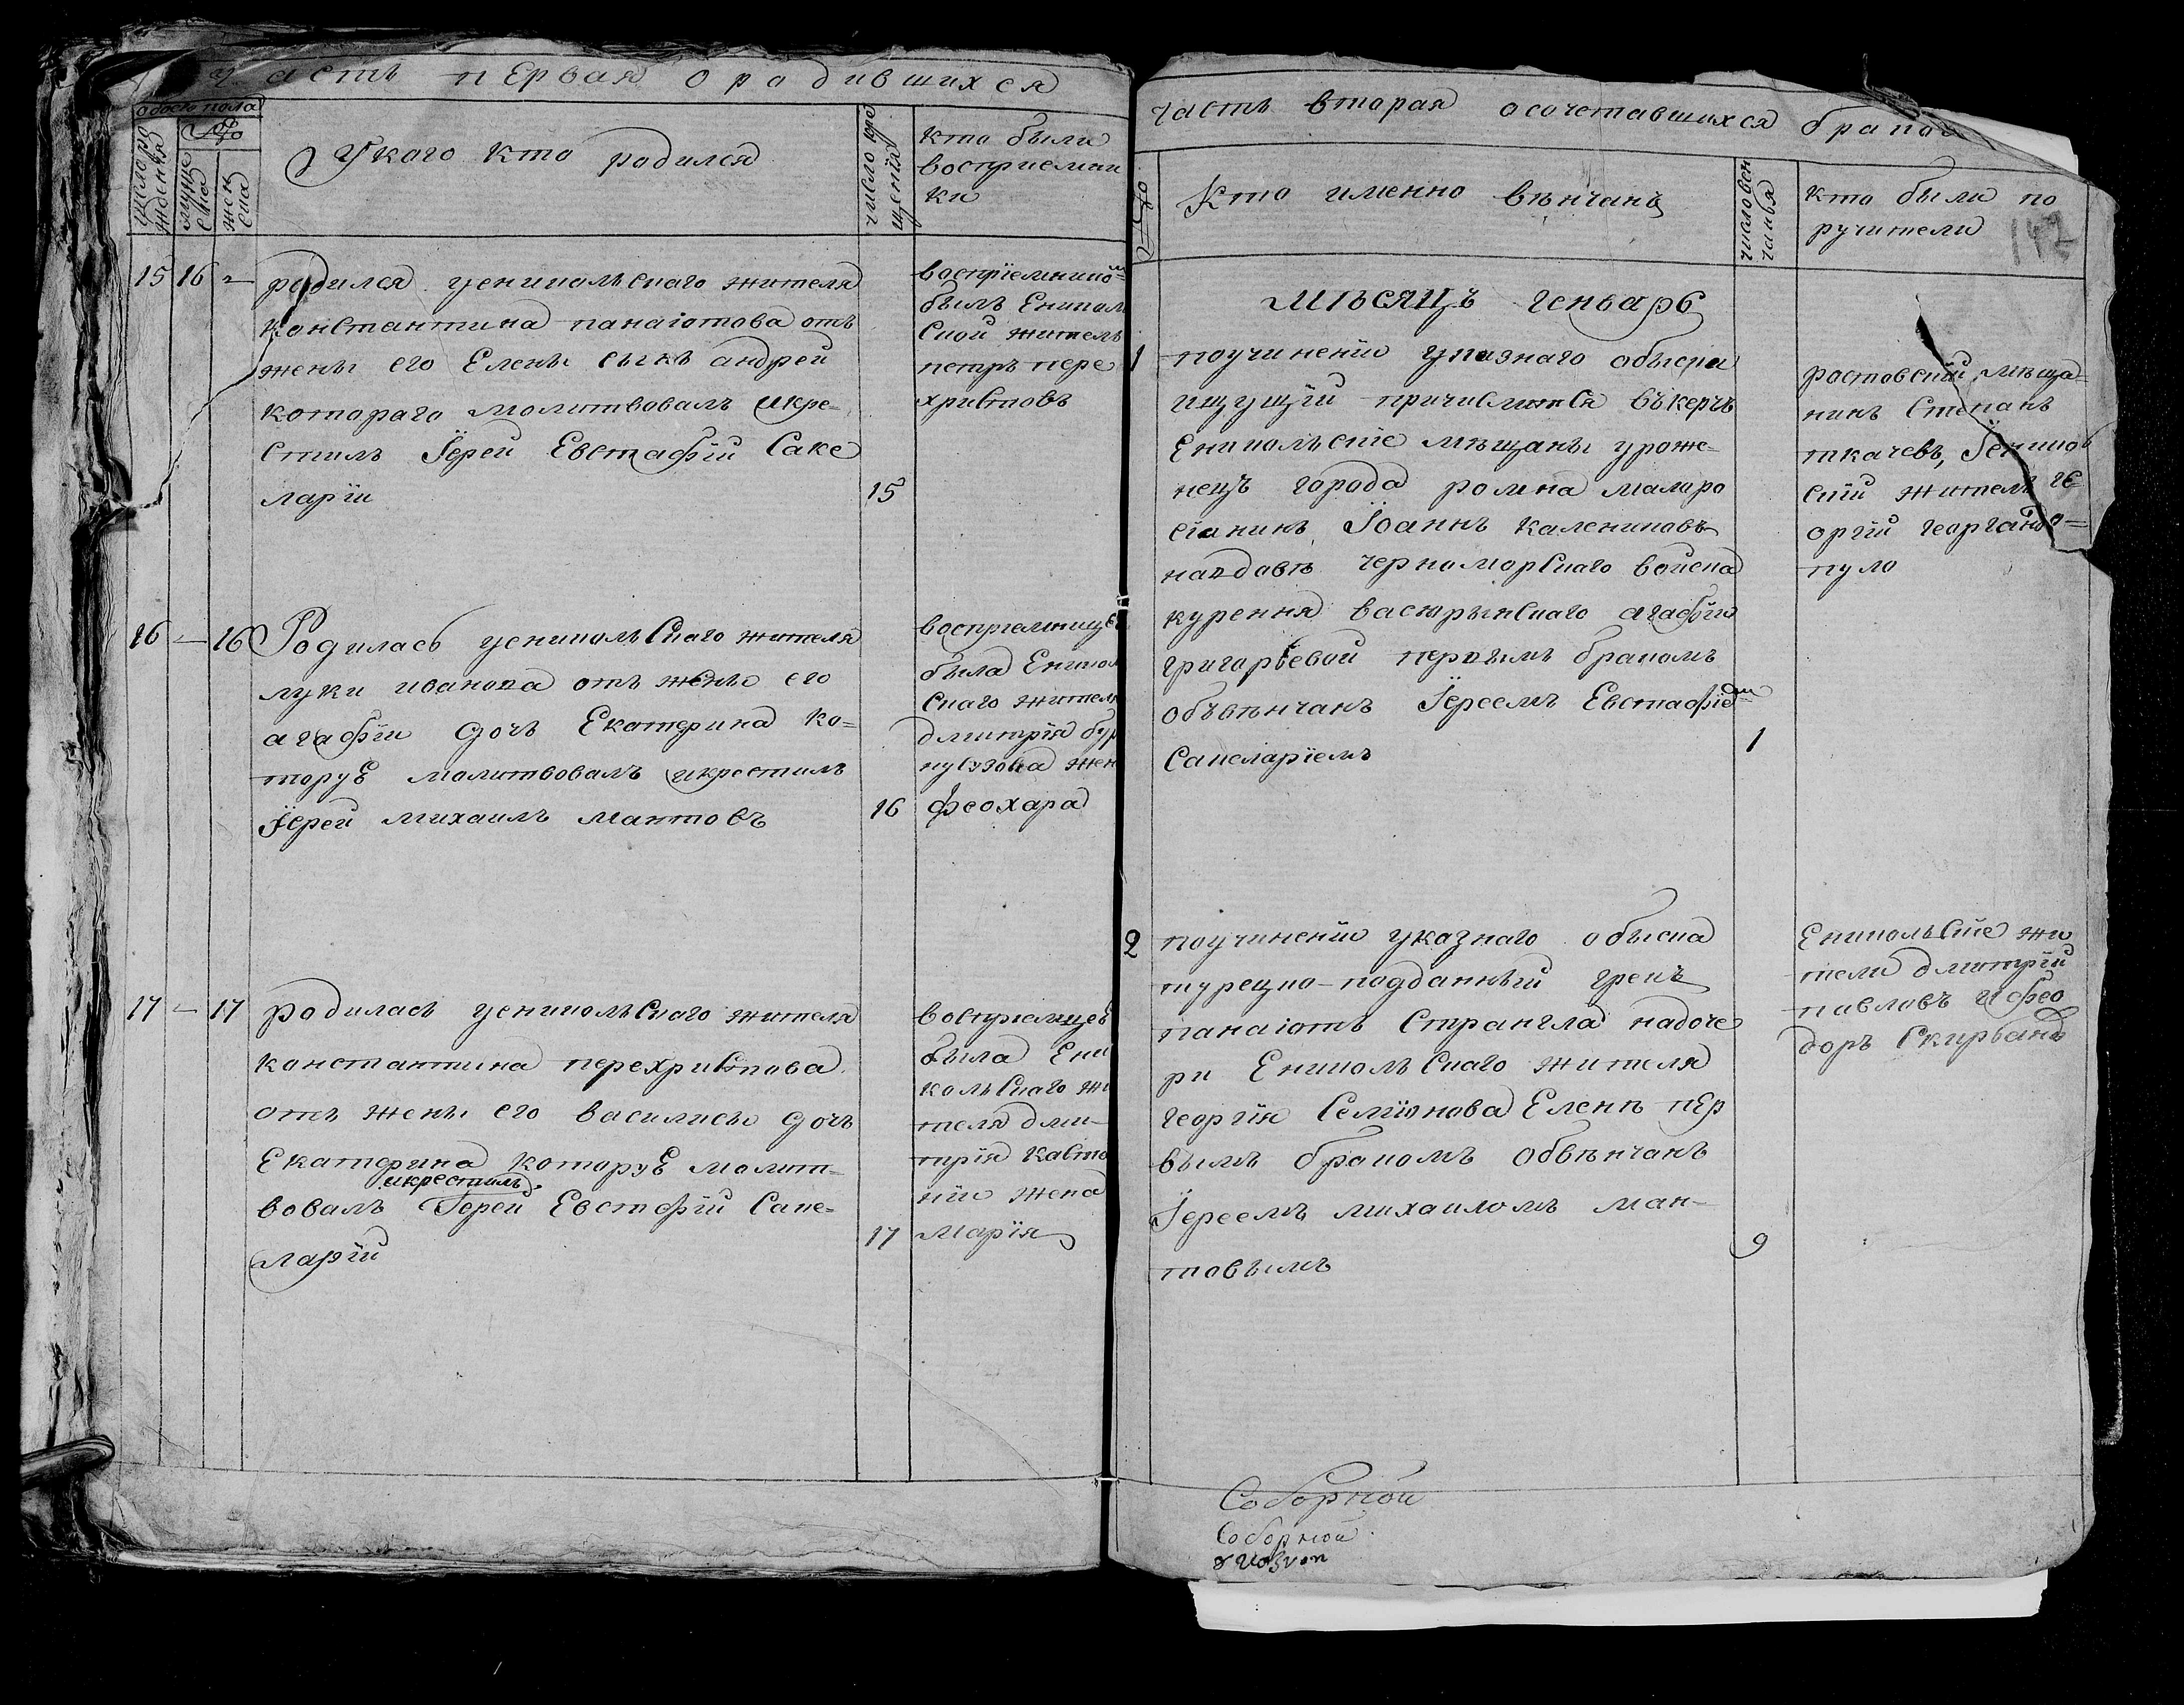 часть первая о родившихся
обоего пола
число рождения
мужеска
женска
У кого кто родился
число крещения
кто были
восприемни
ки
15 16 – родился уеникольскаго жителя
константина панаіотова отъ
жены его Елены сынъ андрей
котораго молитвовалъ икре-
стилъ Іерей Евстафій Саке
ларій
15
воспріемнико=мъ
былъ Еникол
ской житель
петръ пере
христовъ
16 – 16 Родилась уеникольскаго жителя
луки иванова отъ жены его
агафіи дочь Екатерина ко=
торуЕ молитвовалъ икрестилъ
Іерей михаилъ мантовъ
16
воспріемницей
была Еникол
скаго жителя
дмитрія
жен
феохара
17 – 17 родилась уеникольскаго жителя
константина перехристова
отъ жены его василисы дочь
Екатерина которуЕ молит-
икрестилъ
вовалъ Іерей Евстофій Саке-
ларій
17
воспріемицей
была Ени
кольскаго жи
теля дми-
трія кавто
нѣи жена
марія
часть вторая осочетавшихся бракомъ
Кто именно вѣнчанъ
число вен
чанія
кто были по
ручители
147
мѣсяцъ геньварь
1 поучиненіи указнаго обыска
ищущій причислится въкерчь
Еникольскіе мѣщаны уроже-
нецъ города ромна малоро
сіанинъ Іоаннъ калениковъ
навдовѣ черноморскаго войска
куреня васюрынскаго агафіи
григорьевой первымъ бракомъ
объвѣнчанъ Іереемъ Евстафіемъ
Сакеларіемъ
1
ростовскій мѣща=
нинъ Степанъ
ткачевъ, Іениколь
скій житель ге
оргій георгандо=
пуло
2 поучиненіи указнаго обыска
турецко-подданный грекъ
панаіотъ Странгла надоче
ри Еникольскаго жителя
георгія Семіонова Еленѣ пер
вымъ бракомъ обвѣнчанъ
Іереемъ михаиломъ ман-
товымъ
9
Еникольскіе жи
тели дмитрій
павловъ и фео
доръ Скирванъ
Соборной
Соборной